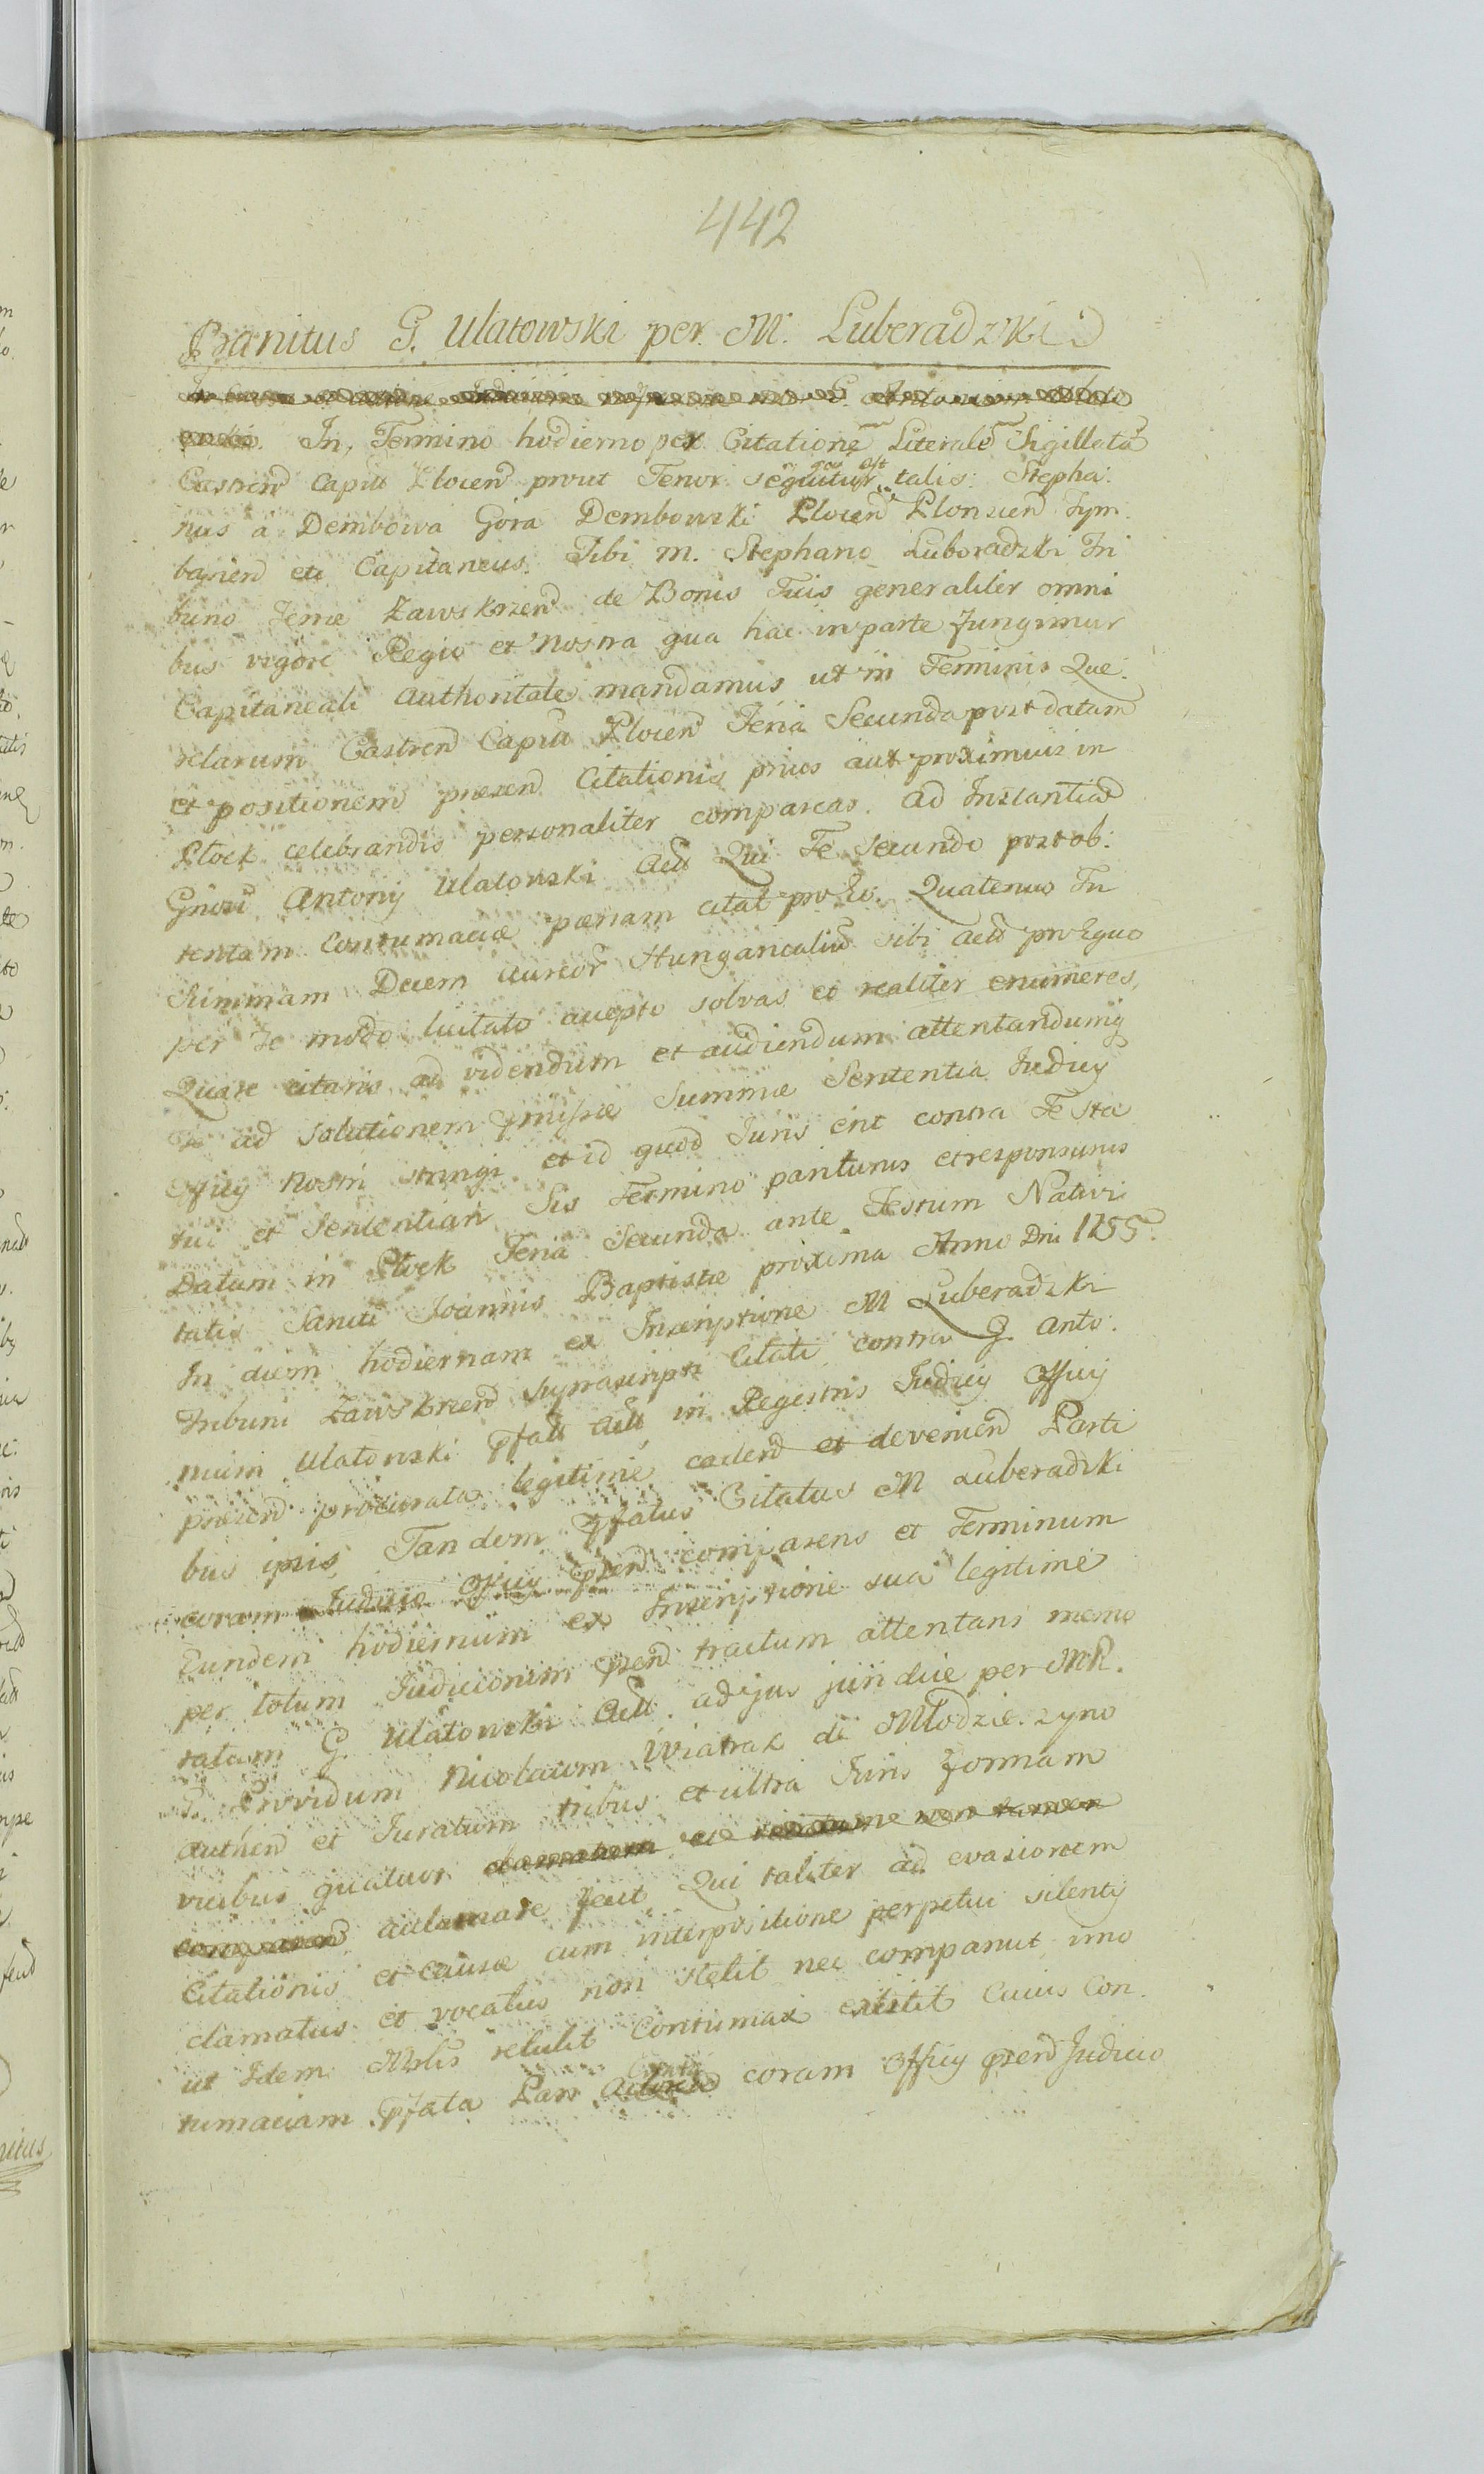 442
Banitus G. Ulatowski per M. Luberadzki
In Termino hodierno per Citatione Literale Sigillata
Castren Capit Plocen prout Tenor sequitur talis: Stepha:
nus à Dembowa Góra Dembowski Plocen Plonscen Tym
barien etc Capitaneus. Tibi M. Stephano Luboradzki Tri
buno Terrae Zawskrzen de Bonis Tuis generaliter omni
bus vigore Regia et Nostra qua hac in parte fungimur
Capitaneali Authoritate mandamus ut in Terminis Que:
relarum Castren Capit Plocen Feria Secunda post datam
et positionem presen Citationis prius aut proximius in
Plock celebrandis personaliter compareas. ad Instantia
Gnosi Antonij Ulatowski Act Qui Te Secundo post ob:
tentam Contumaciae paenam citat pro Eo. Quatenus Tu
Summam Decem aureor Hungaricaliu sibi Act pro Equo
per Te modo licitato accepto solvas et realiter enumeres,
Quare citaris ad videndum et audiendum attentandumq
Te ad solutionem pmissae Summae Sententia Judicij
Officij Nostri stringi et id quod Juris erit contra Te Sta
tui et Sententiari Sis Termino pariturus et responsurus
Datum in Plock Feria Secunda ante Festum Nativi
tatis Sancti Joannis Baptistae proxima Anno Dni 1755.
In diem hodiernam ex Inscriptione M Luberadzki
Tribuni Zawskrzen suprascripti Citati contra G. Anto:
nium Ulatowski pfatt Act in Regestris Judicij Officij
presen procurata legitime caden et devenien Parti
bus ipsis Tandem pfatus Citatus M Luberadzki
coram Judicio Officij psen comparens et Terminum
Eundem hodiernum ex Inscriptione sua legitime
per totum Judiciorum psen tractum attentans memo
ratum G. Ulatowski Act adejus juridice per MR.
P. Providum Nicolaum Wiatrak de Młodzie.zyno
authen et Juratum tribus et ultra Juris formam
vicibus quatuor
acclamare fecit Qui taliter ad evasionem
Citationis et causae cum interpositione perpetui silentij
clamatus et vocatus non stetit nec comparuit imo
ut Idem Mlis retulit Contumax extitit Cuius Con:
tumaciam pfata Pars Citata coram Officij psen Judicio